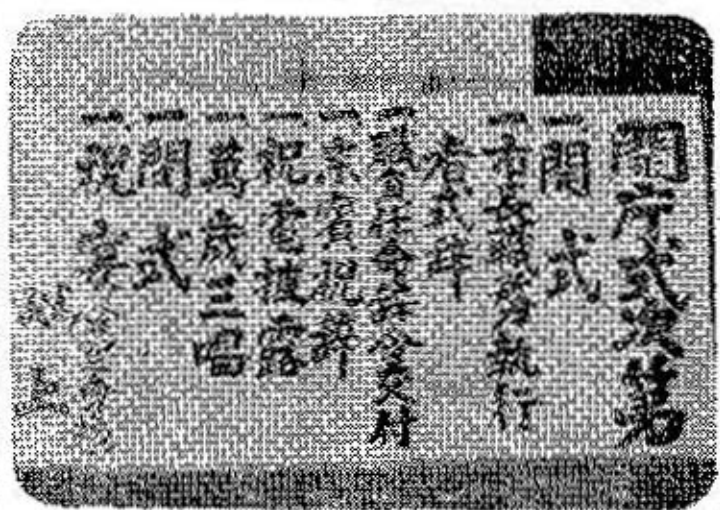 開庁式次第
一開式
一市長職務執行
者式辞
一職員任命辞令交付
一来賓祝辞
一祝電披露
一萬歳三唱
一閉式
一祝宴
以上